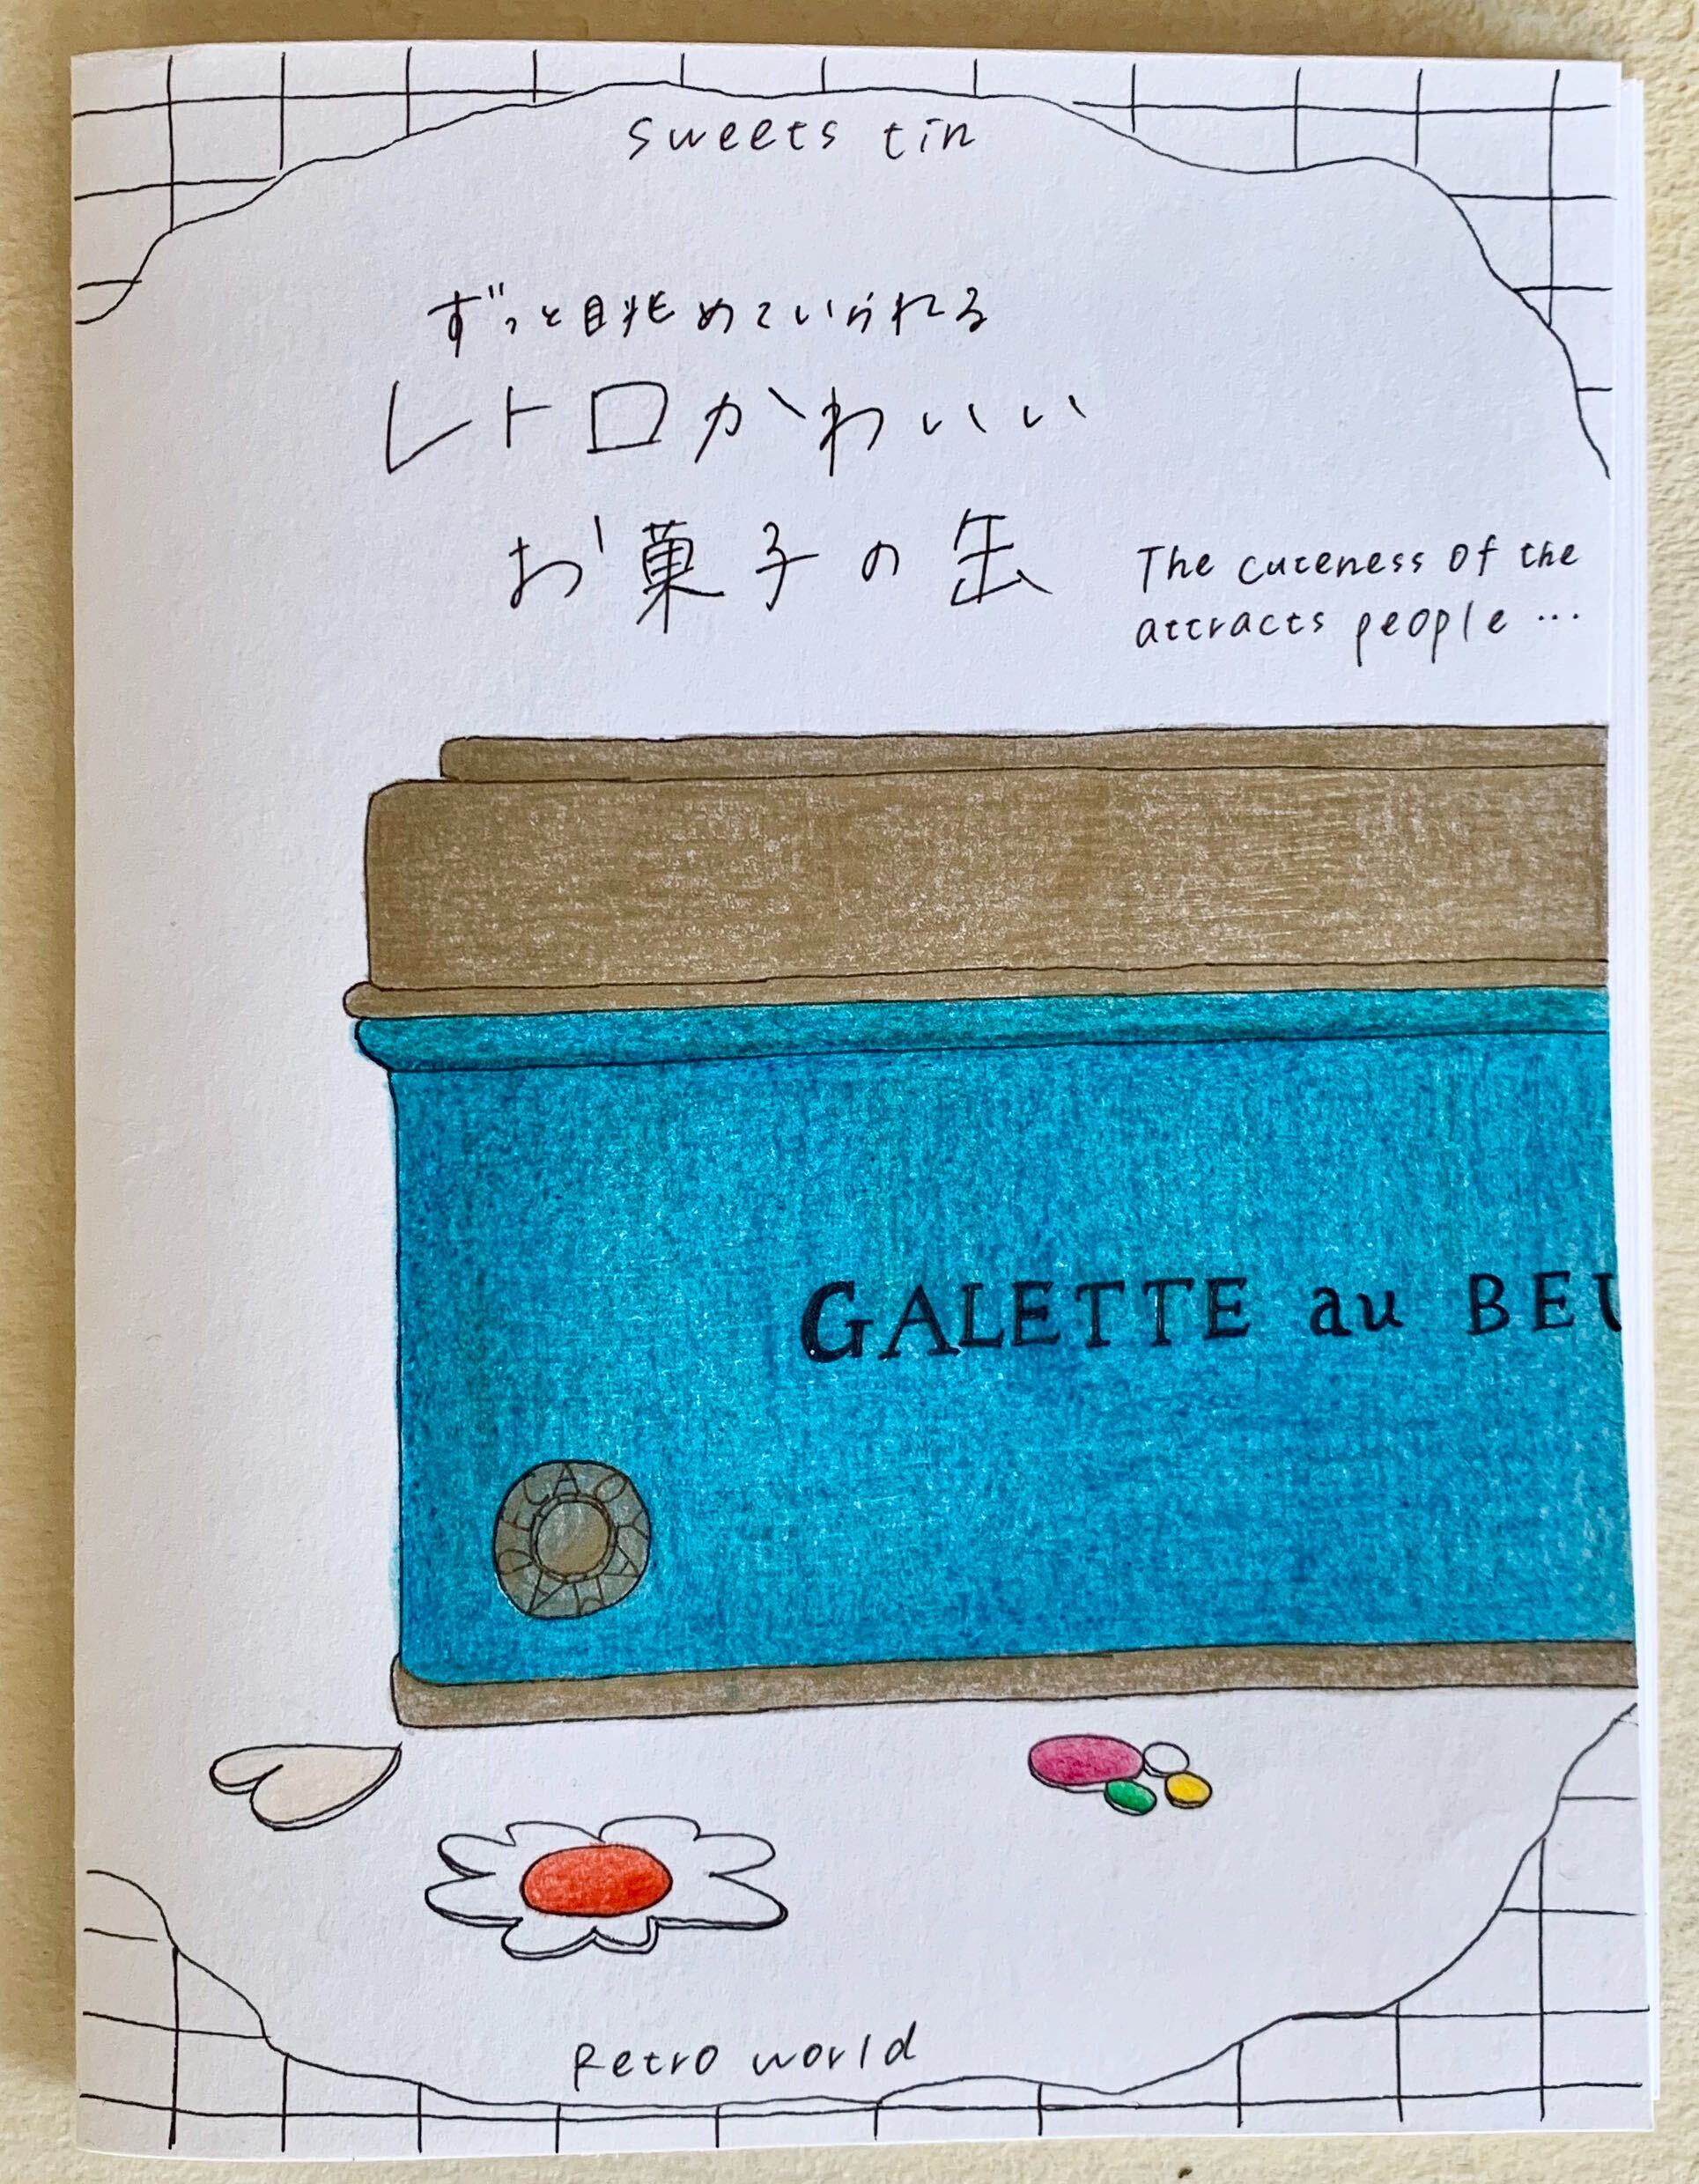 sweets tin
ずっと眺めていられる
レトロかわいい
お菓子の缶
The cuteness of the
attracts people …
GALETTE au BEU
Retro world